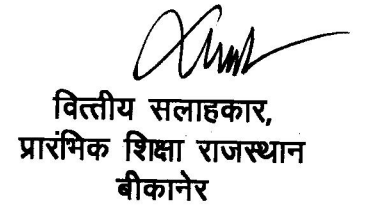 वित्तीय सलाहकार,
प्रारंभिक शिक्षा राजस्थान
बीकानेर